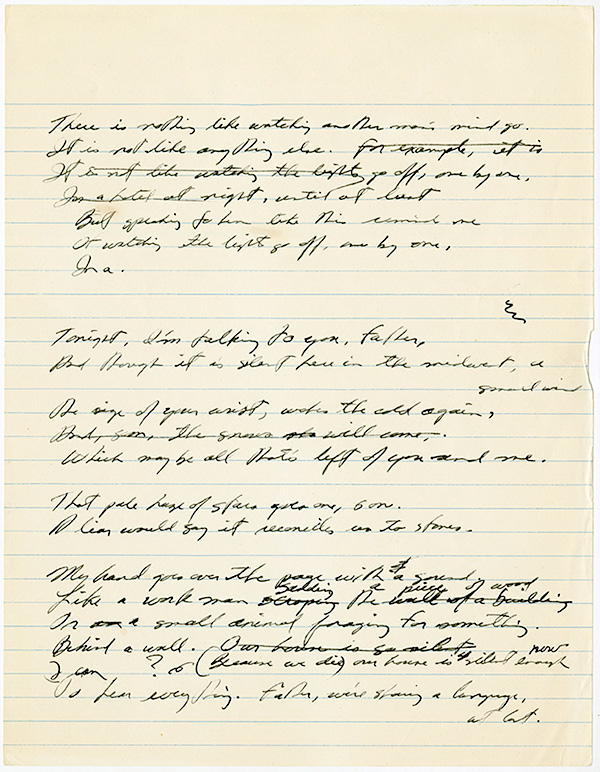 There is nothing like watching another man's mind go.
It is not like anything else. For example, it is
It is not like watching the lights go off, one by one,
In a hotel at night, until at last
But speaking to him like this remind me
Of watching the lights go off, one by one,
In a.
Tonight, I'm talking to you, Father,
And though it is silent here in the midwest, a
small wind
The size of your wrist, wakes the cold again,
And, son, the snows will come,
Which may be all that's left of you and me.
That pale haze of stars goes on, son.
A liar would say it reconciles us to stones.
My hand goes over the page with a sound
Like a work man scraping the wall of a building
sanding a piece of wood
Or a small animal foraging for something
Behind a wall. Our house is so silent now
I can ? or (Because we died) our house is silent enough
To hear everything. Father, we're sharing a language,
at last.